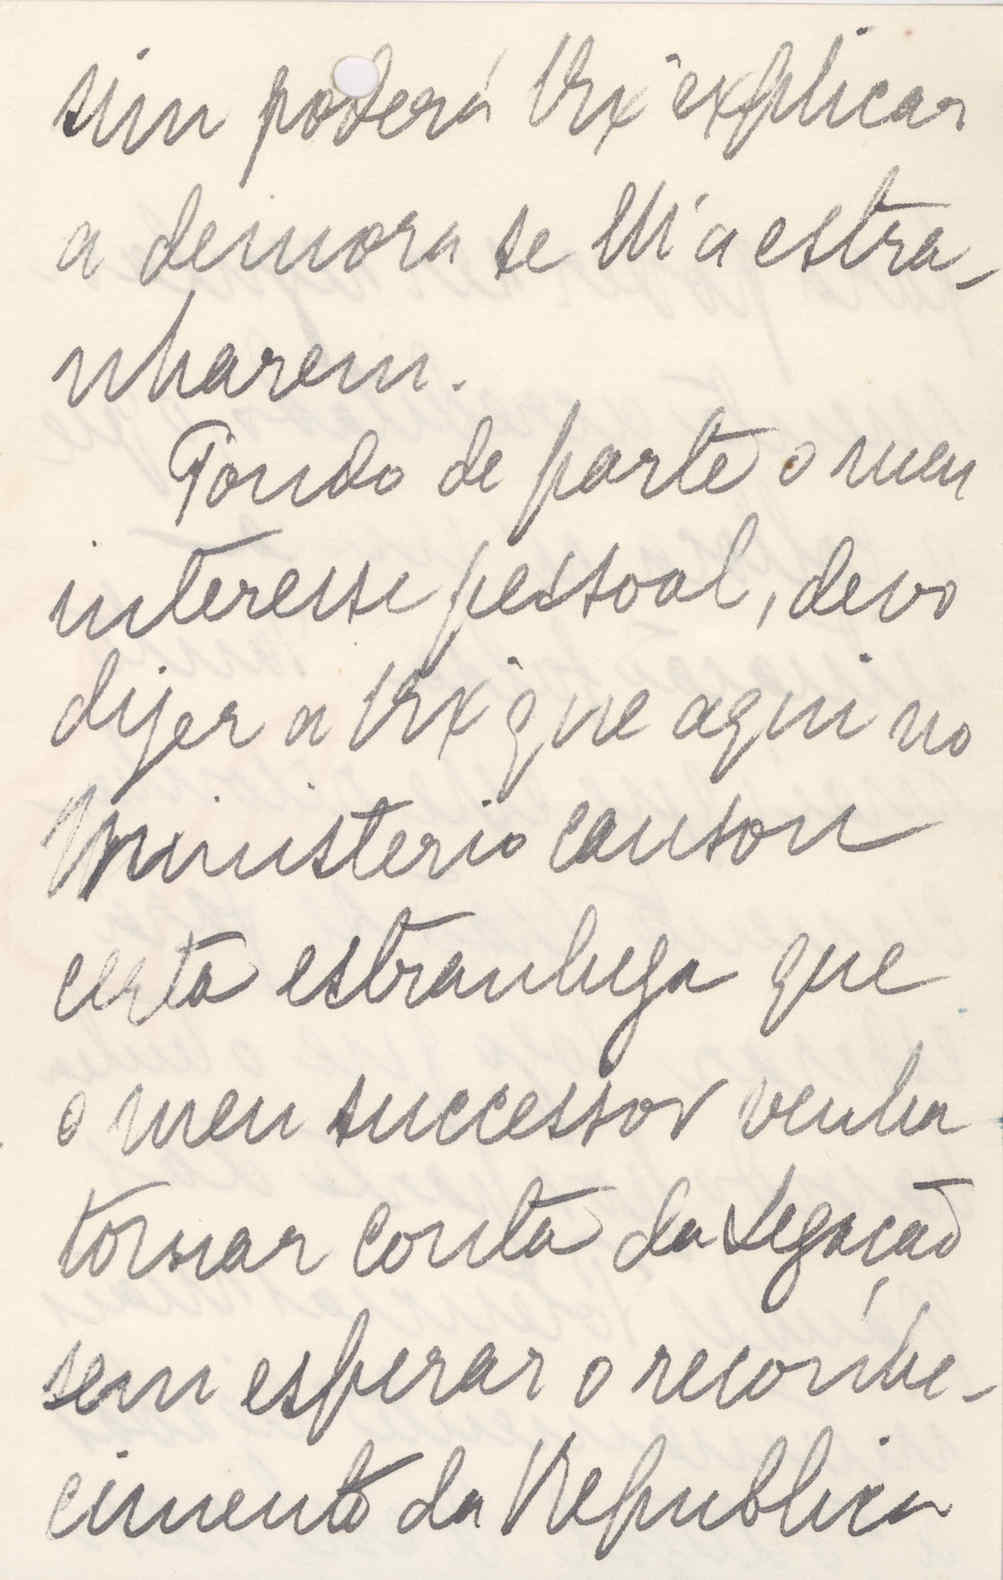 sim poderá V Exª explicar
a demora se lh'a estra-
nharem.
Pondo de parte o meu
interesse pessoal, devo
dizer a V Exª que aqui no
Ministerio causou
certa estranheza que
o meu successor venha
tomar conta da Legação
sem esperar o reconhe-
cimento da Republica